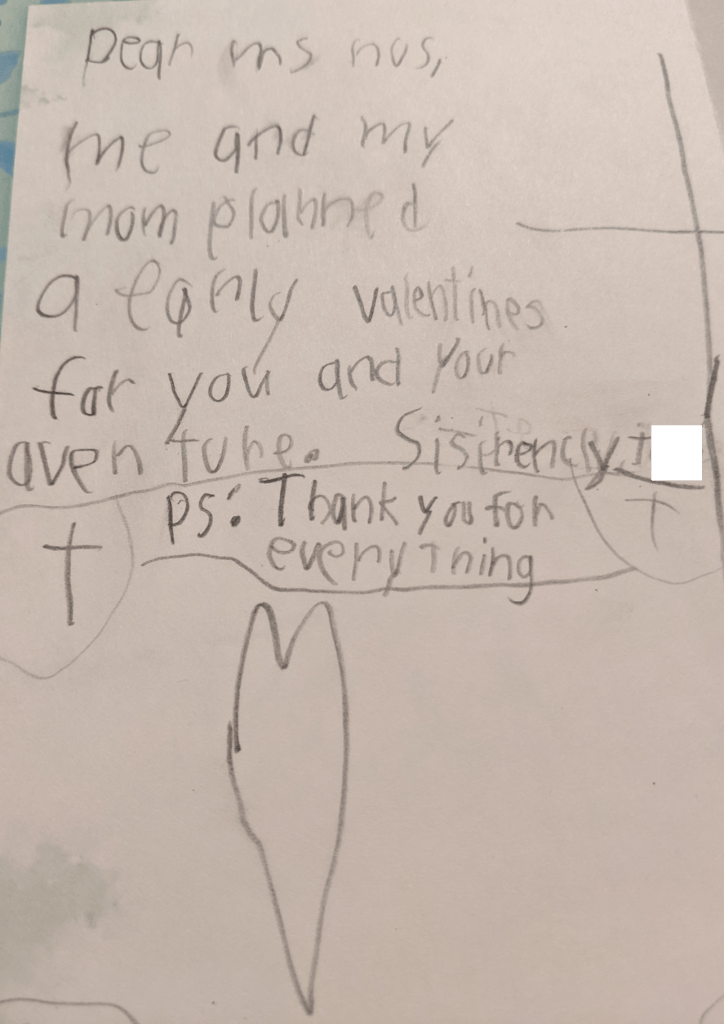 Dear ms nus,
me and my
mom planned
a early valentines
for you and your
aventure. Sisirencly,
PS: Thank you for
everything